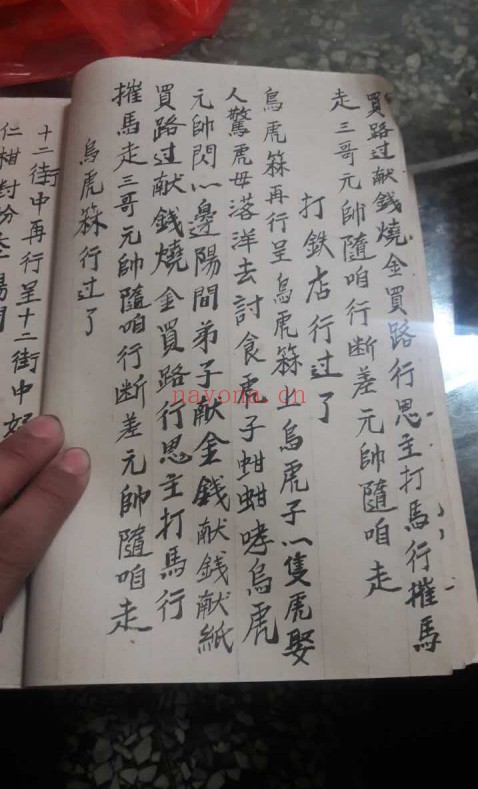 買路过献錢燒金買路行恩主打馬行摧馬
走三哥元帥隨咱行断差元帥隨咱走
打鉄店行过了
烏虎槑再行呈烏虎槑上烏虎子一隻虎娶
人驚虎母落洋去討食虎子蚶蚶哮烏虎
元帥閃一邊陽間弟子献金錢献錢献紙
買路过献錢燒金買路行恩主打馬行
摧馬走三哥元帥隨咱行断差元帥隨咱走
烏虎槑行过了
十二街中再行呈十二街中好
仁柑對分
nayona.cn